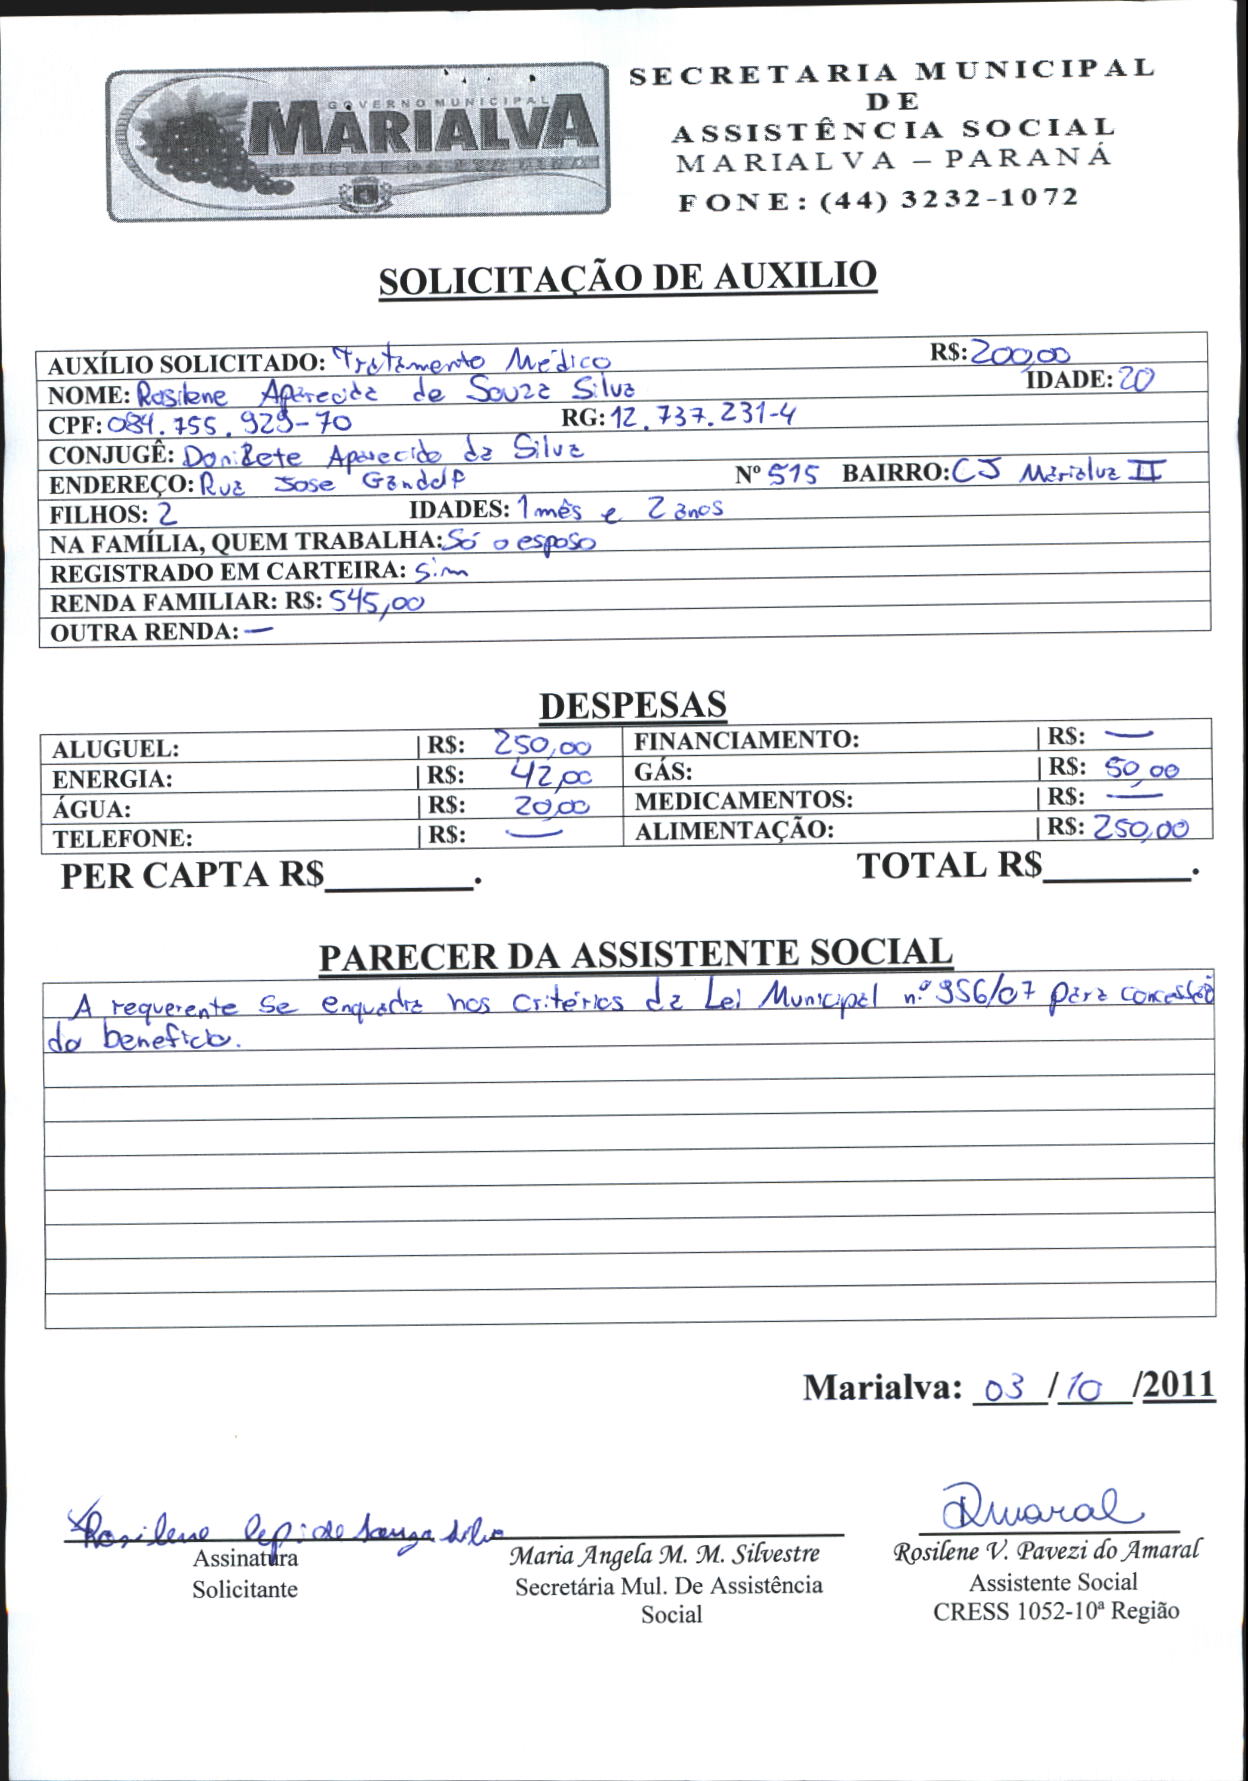 GOVERNO MUNICIPAL
MARIALVA
SECRETARIA MUNICIPAL
DE
ASSISTÊNCIA SOCIAL
MARIALVA – PARANÁ
FONE: (44) 3232-1072
SOLICITAÇÃO DE AUXILIO
AUXÍLIO SOLICITADO: Tratamento Médico R$: 200,00
NOME: Rosilene Aparecida de Souza Silva IDADE: 20
CPF: 084.755.929-70 RG: 12.737.231-4
CONJUGÊ: Donizete Aparecido da Silva
ENDEREÇO: Rua Jose Nº 515 BAIRRO: CJ Marialva II
FILHOS: 2 IDADES: 1 mês e 2 anos
NA FAMÍLIA, QUEM TRABALHA: Só o esposo
REGISTRADO EM CARTEIRA: Sim
RENDA FAMILIAR: R$: 545,00
OUTRA RENDA: —
DESPESAS
ALUGUEL: | R$: 250,00 FINANCIAMENTO: | R$: —
ENERGIA: | R$: 42,00 GÁS: | R$: 50,00
ÁGUA: | R$: 20,00 MEDICAMENTOS: | R$: —
TELEFONE: | R$: — ALIMENTAÇÃO: | R$: 250,00
PER CAPTA R$________. TOTAL R$________.
PARECER DA ASSISTENTE SOCIAL
A requerente se enquadra nos critérios da Lei Municipal n.º 956/07 para concessão
do beneficio.
Marialva: 03/10/2011
Rosilene Ap. de Souza Silva
Amaral
Assinatura
Solicitante
Maria Angela M. M. Silvestre
Secretária Mul. De Assistência
Social
Rosilene V. Pavezi do Amaral
Assistente Social
CRESS 1052-10ª Região